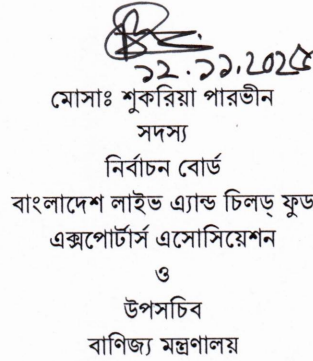 ১২.১১.২০২৫
মোসাঃ শুকরিয়া পারভীন
সদস্য
নির্বাচন বোর্ড
বাংলাদেশ লাইভ এ্যান্ড চিলড্ ফুড
এক্সপোর্টার্স এসোসিয়েশন
ও
উপসচিব
বাণিজ্য মন্ত্রণালয়